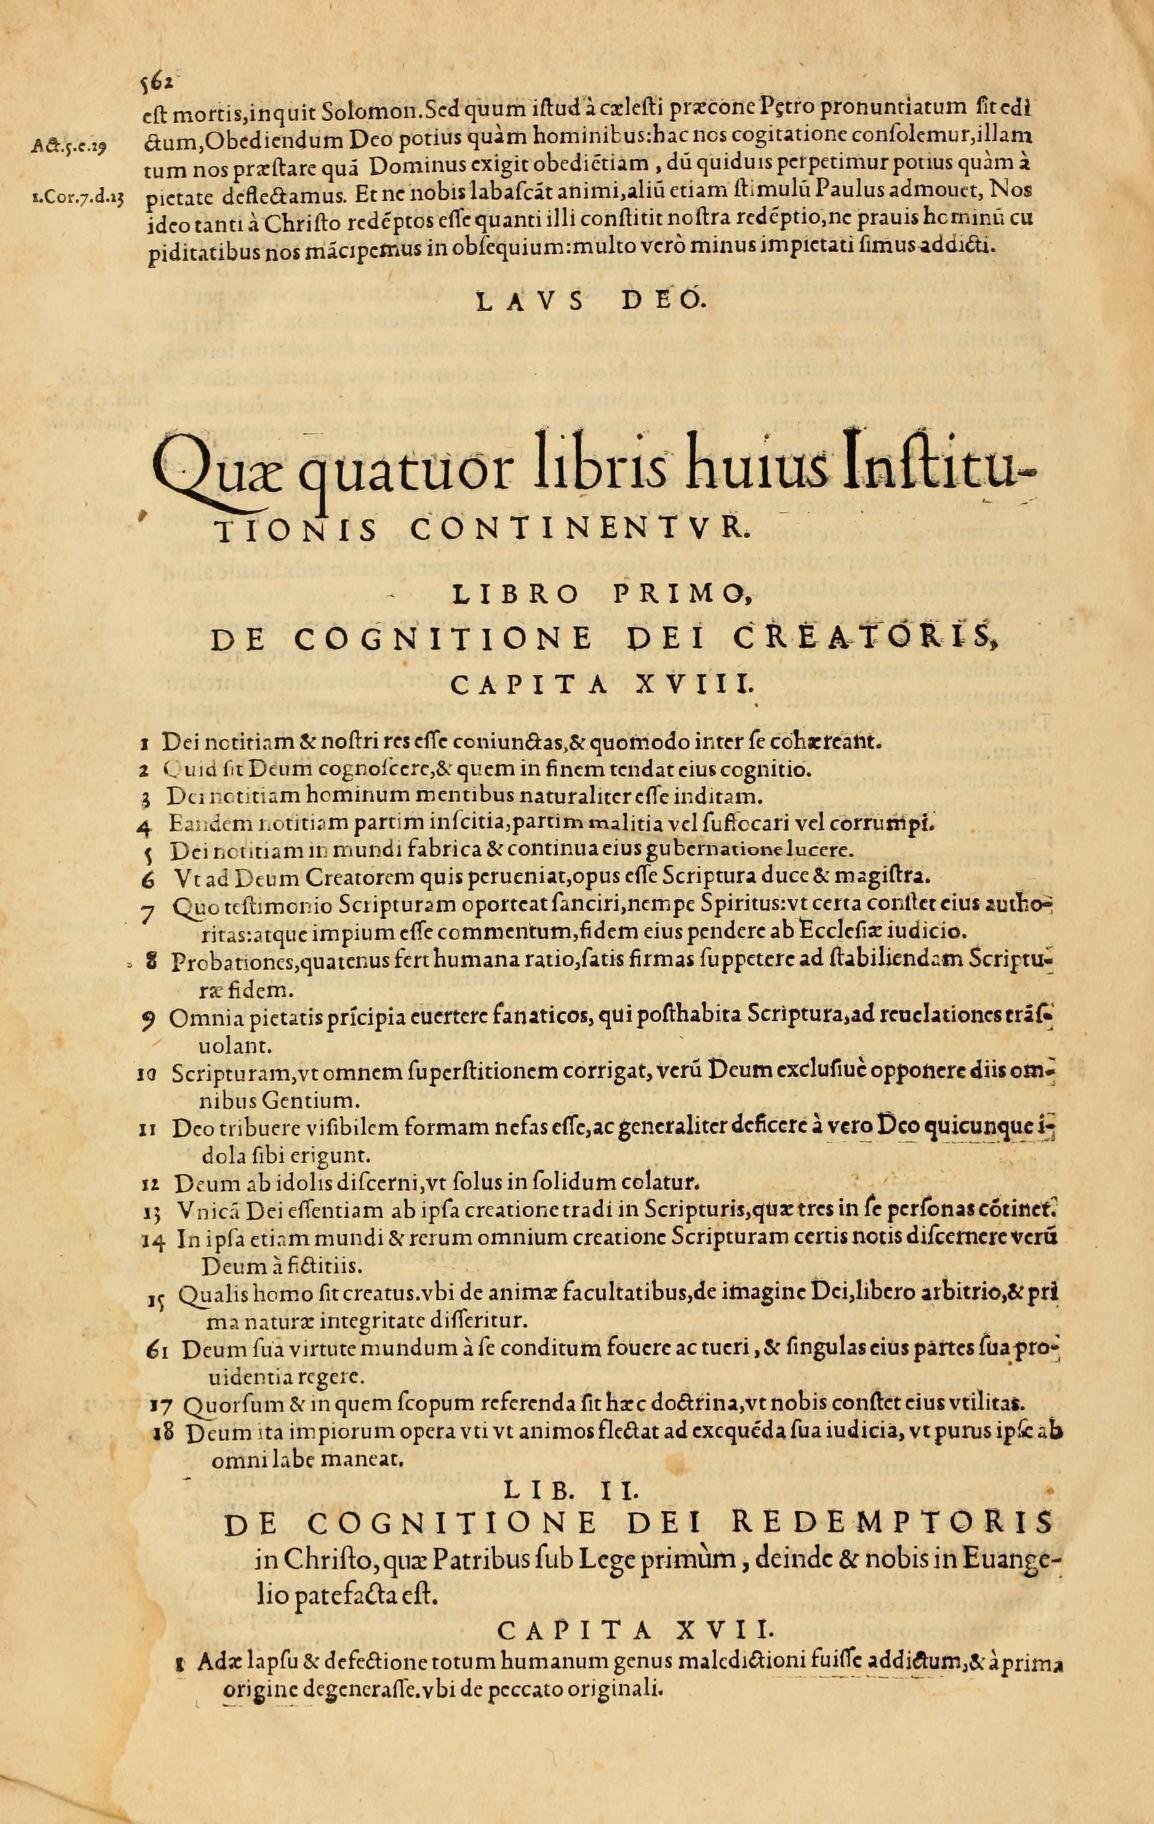 562
est mortis,inquit Solomon.Sed quum istud à cælesti præcone Petro pronuntiatum sit edi
Act.5.e.29
ctum,Obediendum Deo potius quàm hominibus:hac nos cogitatione consolemur,illam
tum nos præstare quã Dominus exigit obediẽtiam , dũ quiduis perpetimur potius quàm à
1.Cor.7.d.23
pietate deflectamus. Et ne nobis labascãt animi,aliũ etiam stimulũ Paulus admouet, Nos
ideo tanti à Christo redẽptos esse quanti illi constitit nostra redẽptio,ne prauis hominũ cu
piditatibus nos mãcipemus in obsequium:multo verò minus impietati simus addicti.
LAVS DEO.
Quæ quatuor libris huius Institu-
TIONIS CONTINENTVR.
LIBRO PRIMO,
DE COGNITIONE DEI CREATORIS,
CAPITA XVIII.
1 Dei notitiam & nostri res esse coniunctas,& quomodo inter se cohæreant.
2 Quid sit Deum cognoscere,& quem in finem tendat eius cognitio.
3 Dei notitiam hominum mentibus naturaliter esse inditam.
4 Eandem notitiam partim inscitia,partim malitia vel suffocari vel corrumpi.
5 Dei notitiam in mundi fabrica & continua eius gubernatione lucere.
6 Vt ad Deum Creatorem quis perueniat,opus esse Scriptura duce & magistra.
7 Quo testimonio Scripturam oporteat sanciri,nempe Spiritus:vt certa constet eius autho-
ritas:atque impium esse commentum,fidem eius pendere ab Ecclesiæ iudicio.
8 Probationes,quatenus fert humana ratio,satis firmas suppetere ad stabiliendam Scriptu-
ræ fidem.
9 Omnia pietatis prĩcipia euertere fanaticos, qui posthabita Scriptura,ad reuelationes trãs-
uolant.
10 Scripturam,vt omnem superstitionem corrigat, verũ Deum exclusiuè opponere diis om-
nibus Gentium.
11 Deo tribuere visibilem formam nefas esse,ac generaliter deficere à vero Deo quicunque i-
dola sibi erigunt.
12 Deum ab idolis discerni,vt solus in solidum colatur.
13 Vnicã Dei essentiam ab ipsa creatione tradi in Scripturis,quæ tres in se personas cõtinet.
14 In ipsa etiam mundi & rerum omnium creatione Scripturam certis notis discernere verũ
Deum à fictitiis.
15 Qualis homo sit creatus.vbi de animæ facultatibus,de imagine Dei,libero arbitrio,& pri
ma naturæ integritate disseritur.
61 Deum sua virtute mundum à se conditum fouere ac tueri , & singulas eius partes sua pro-
uidentia regere.
17 Quorsum & in quem scopum referenda sit hæc doctrina,vt nobis constet eius vtilitas.
18 Deum ita impiorum opera vti vt animos flectat ad exequẽda sua iudicia, vt purus ipse ab
omni labe maneat.
LIB. II.
DE COGNITIONE DEI REDEMPTORIS
in Christo,quæ Patribus sub Lege primùm , deinde & nobis in Euange-
lio patefacta est.
CAPITA XVII.
1 Adæ lapsu & defectione totum humanum genus maledictioni fuisse addictum,& à prima
origine degenerasse.vbi de peccato originali.